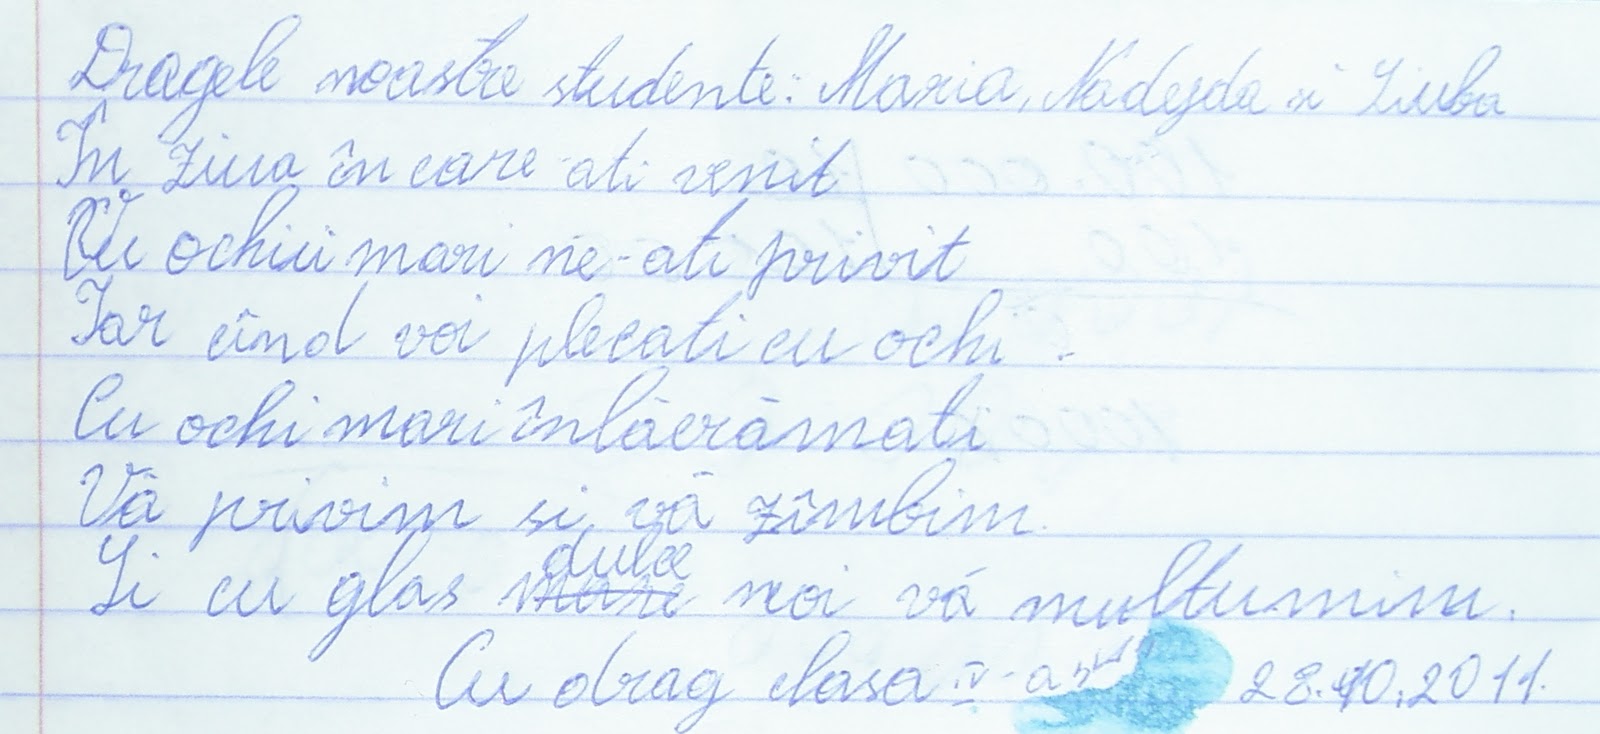 Dragele noastre studente: Maria, Nadejda si Liuba
În ziua în care-ati venit
Cu ochiii mari ne-ati privit
Iar cînd voi plecati cu ochi
Cu ochi mari înlăcrămati
Vă privim si vă zîmbim.
Si cu glas dulce noi vă multumim.
Cu drag clasa IV-a 28.10.2011.